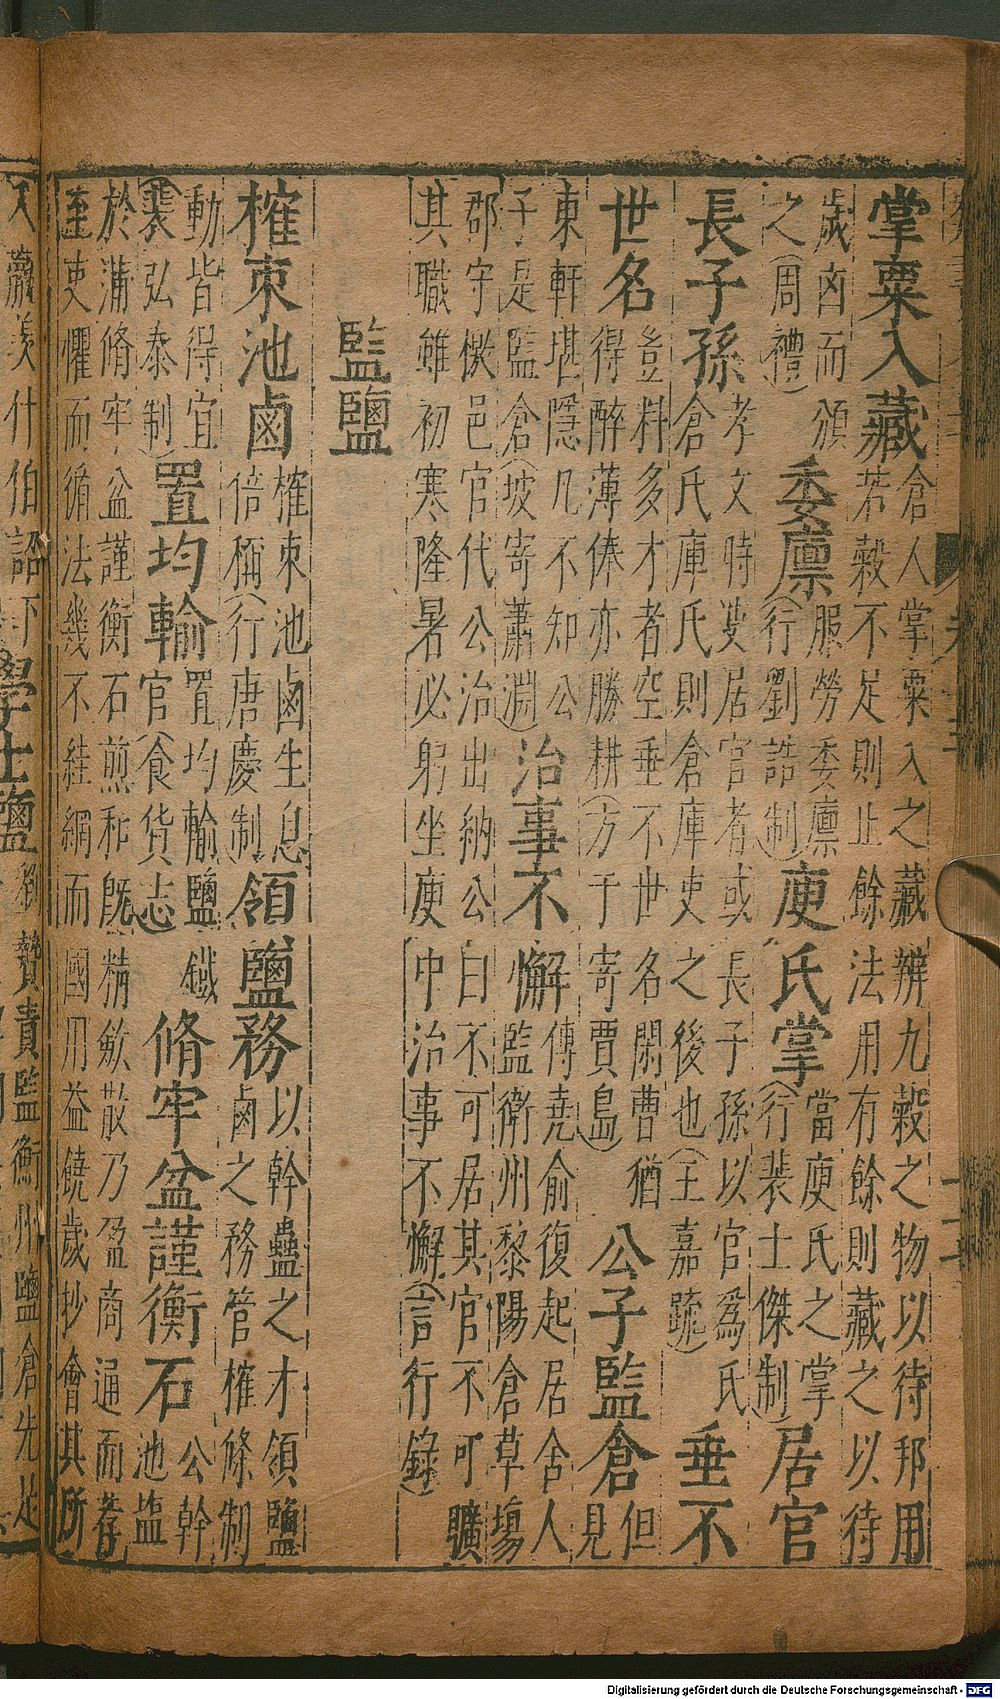 掌粟入藏倉人掌粟入之藏辨九穀之物以待邦用
若穀不足則止餘法用有餘則藏之以待
歲凶而頒
之(周禮)委廩服勞委廩
(行劉誥制)庾氏掌當庾氏之掌
(行裴士傑制)居官
長子孫孝文時吏居官者或長子孫以官為氏
倉氏庫氏則倉庫吏之後也(王嘉疏)垂不
世名豈料多才者空垂不世名閑曹猶
得醉薄俸亦勝耕(方于寄賈島)公子監倉但
見
東軒堪隱几不知公
子是監倉(坡寄蕭淵)治事不懈傅堯俞復起居舍人
監衛州黎陽倉草場
郡守檄邑官代公治出納公曰不可居其官不可曠
其職雖初寒隆暑必躬坐庾中治事不懈(言行錄)
監鹽
榷朿池鹵榷朿池鹵生息
倍稱(行唐慶制)領鹽務以幹蠱之才領鹽
鹵之務管榷條制
動皆得宜
(裴弘泰制)置均輸置均輸鹽鐵
官(食貨志)脩牢盆謹衡石公幹
池塩
於蒲脩牢盆謹衡石煎和既精歛散乃盈商通而荐
逹吏懼而循法幾不絓網而國用益饒歲抄會其所
羨什伯詔下學士鹽
摯責監衡州鹽倉先是
Digitalisierung gefördert durch die Deutsche Forschungsgemeinschaft - DFG